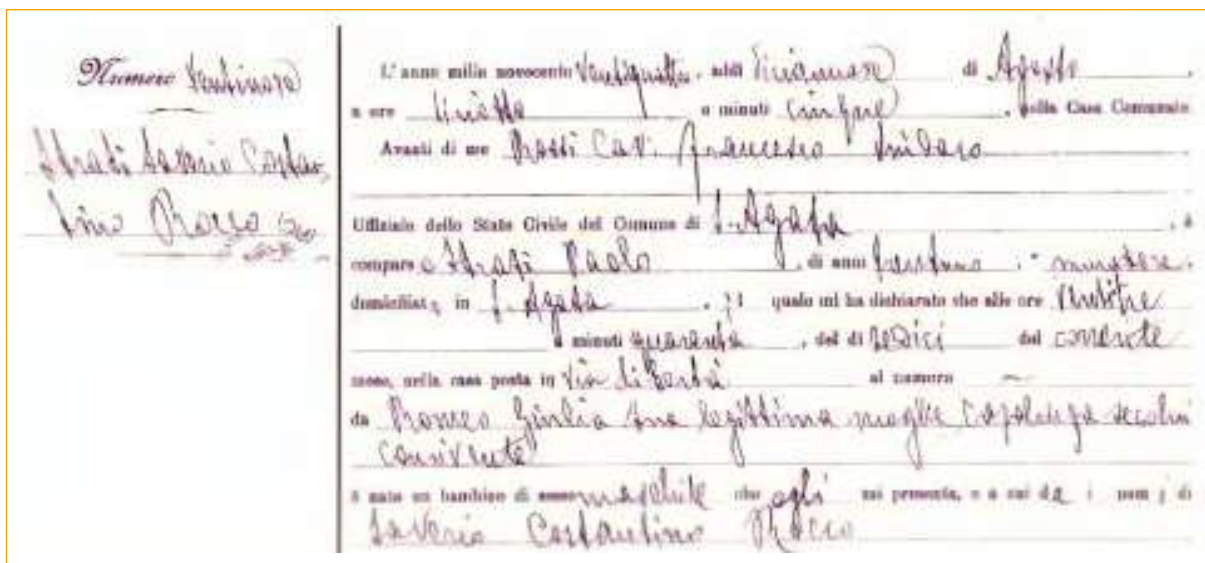 Numero Ventinove
Strati Saverio Costan-
tino Rocco
L'anno mille novecento Ventiquattro, addì diciannove di Agosto,
a ore diciotto e minuti cinque, nella Casa Comunale
Avanti di me Rossi Cav. Francesco Sindaco
Uffiziale dello Stato Civile del Comune di S. Agata, è
comparso Strati Paolo, di anni, muratore,
domiciliato in S. Agata, il quale mi ha dichiarato che alle ore Ventitre
e minuti quaranta, del dì sedici del corrente
mese, nella casa posta in Via Libertà al numero
da Romeo Giulia sua legittima moglie casalinga seco lui
convivente
è nato un bambino di sesso maschile che egli mi presenta, e a cui dà i nomi di
Saverio Costantino Rocco